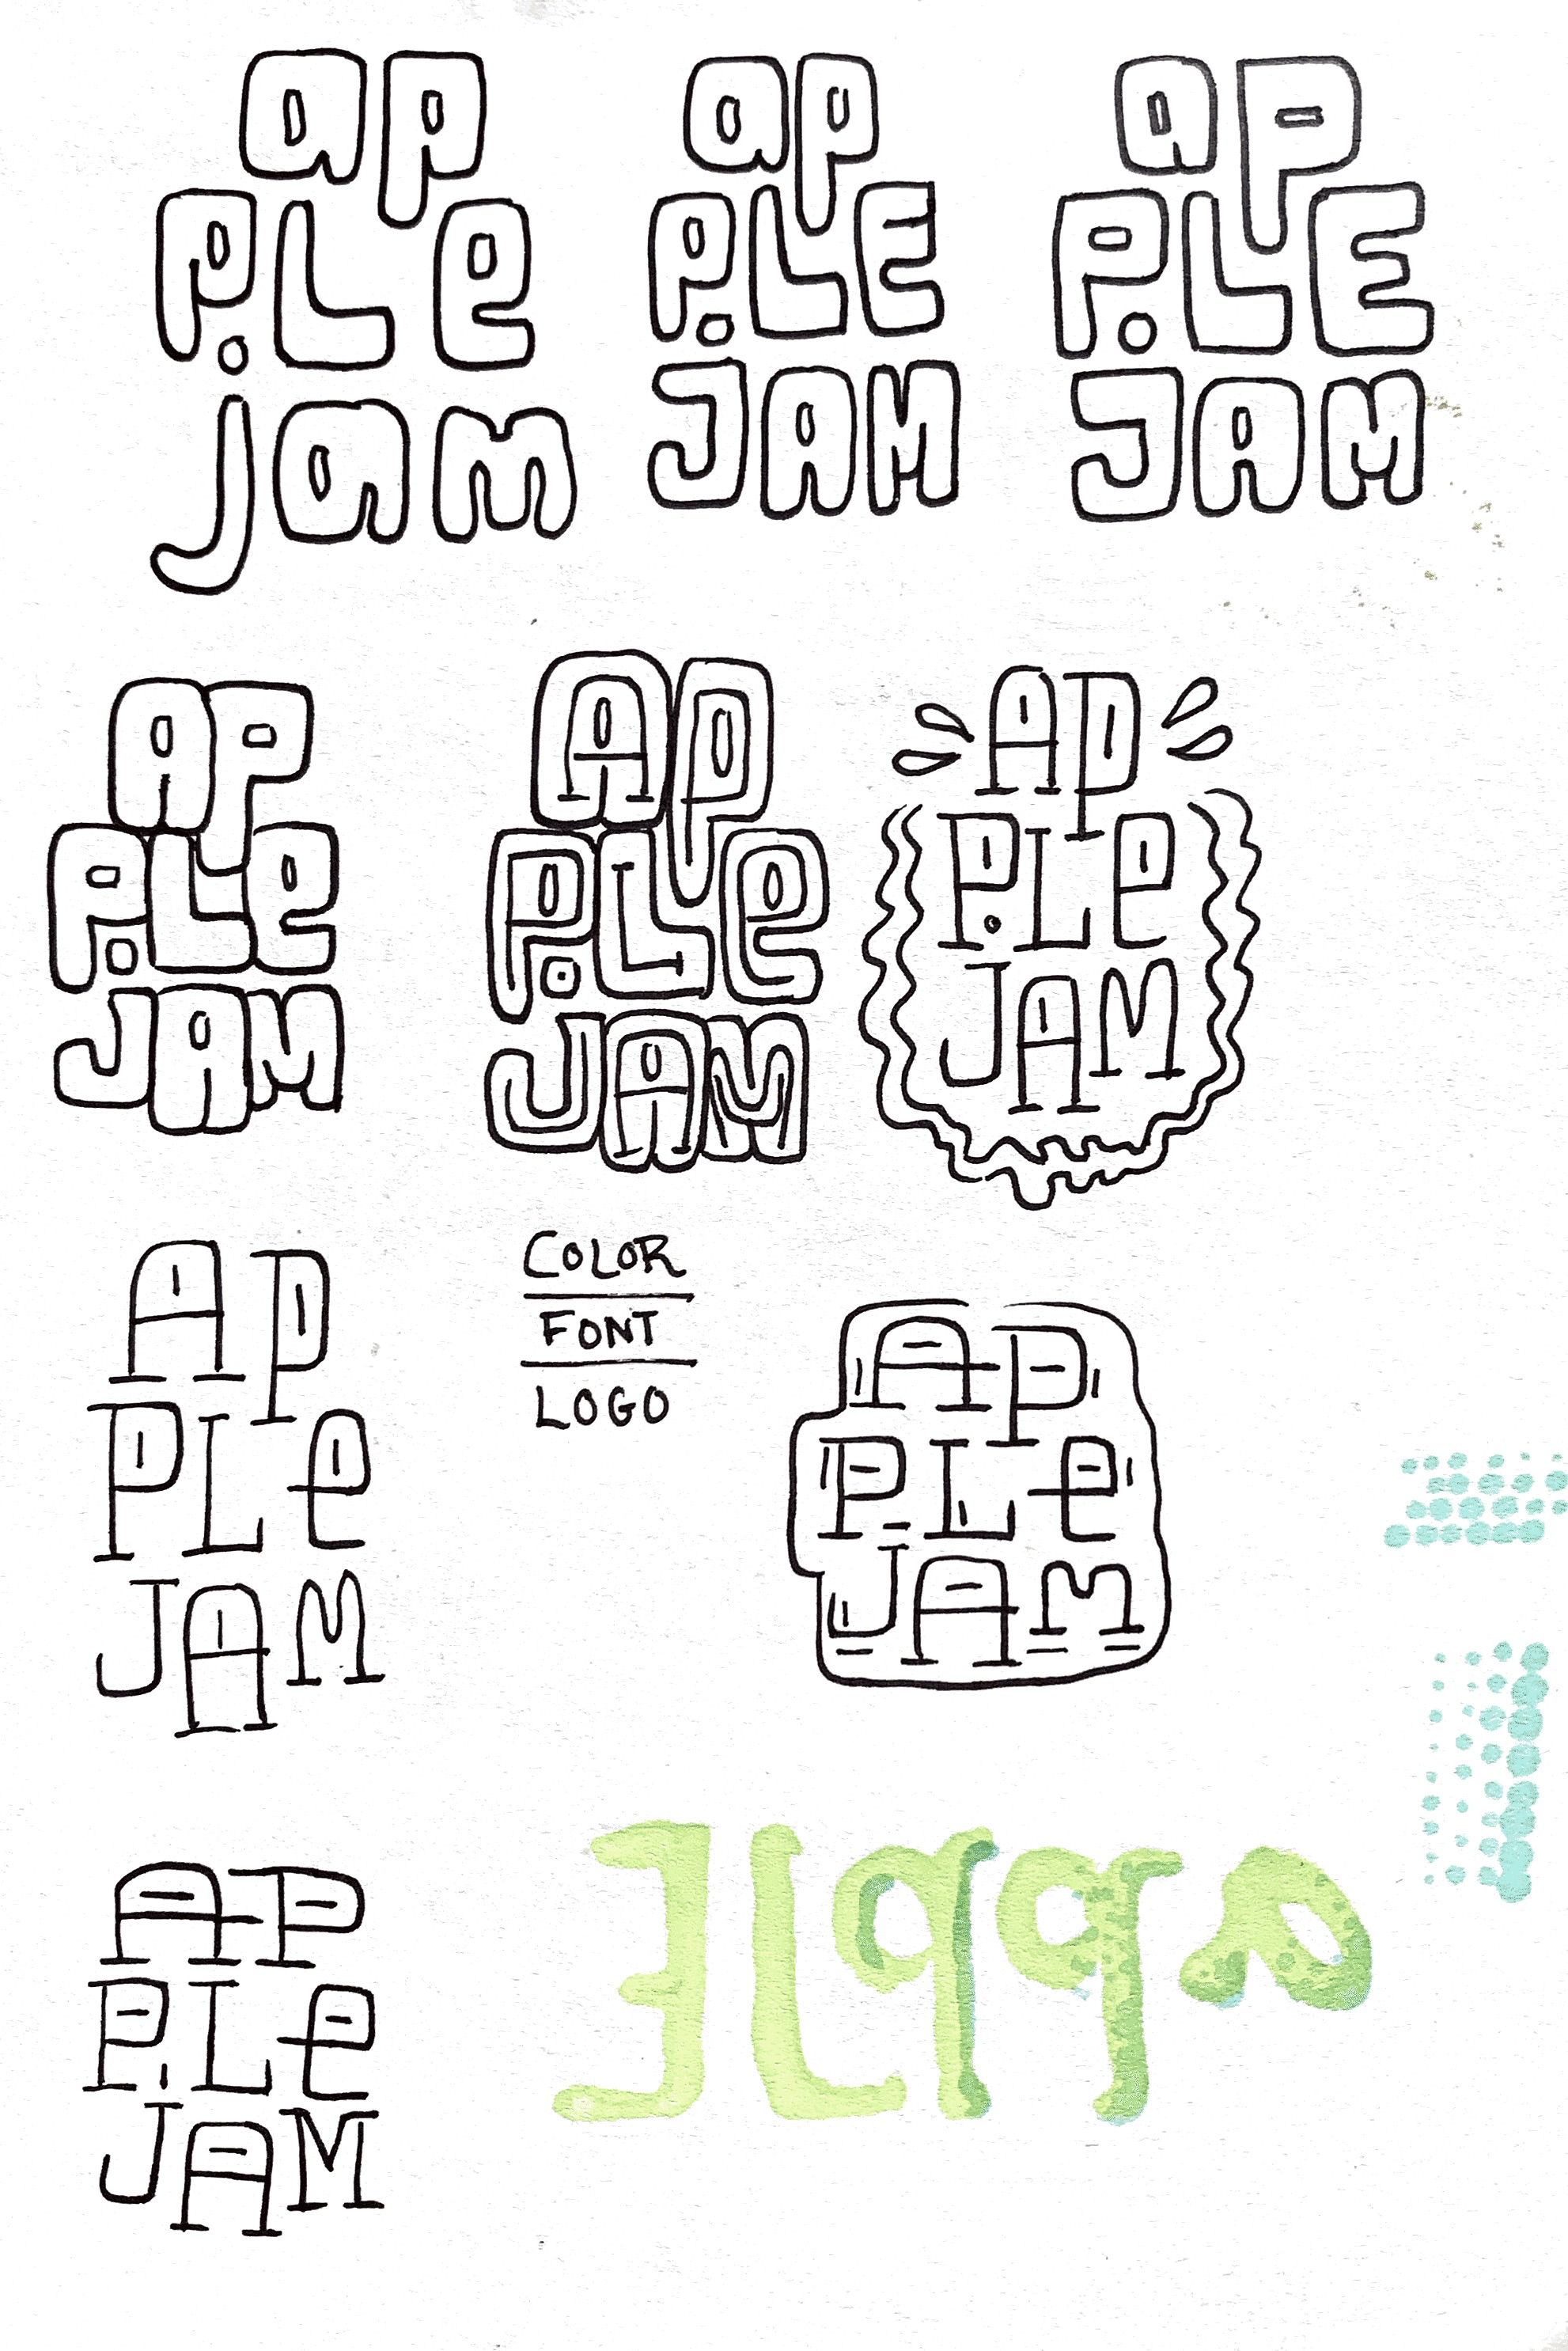 ap
PLe
jam
ap
PLE
JAM
aP
PLE
JAM
AP
PLe
JAM
Ap
PLe
JAM
Ap
PLe
JAM
Ap
PLe
JAM
COLOR
FONT
LOGO
Ap
PLe
JAm
AP
PLe
JAM
appLE